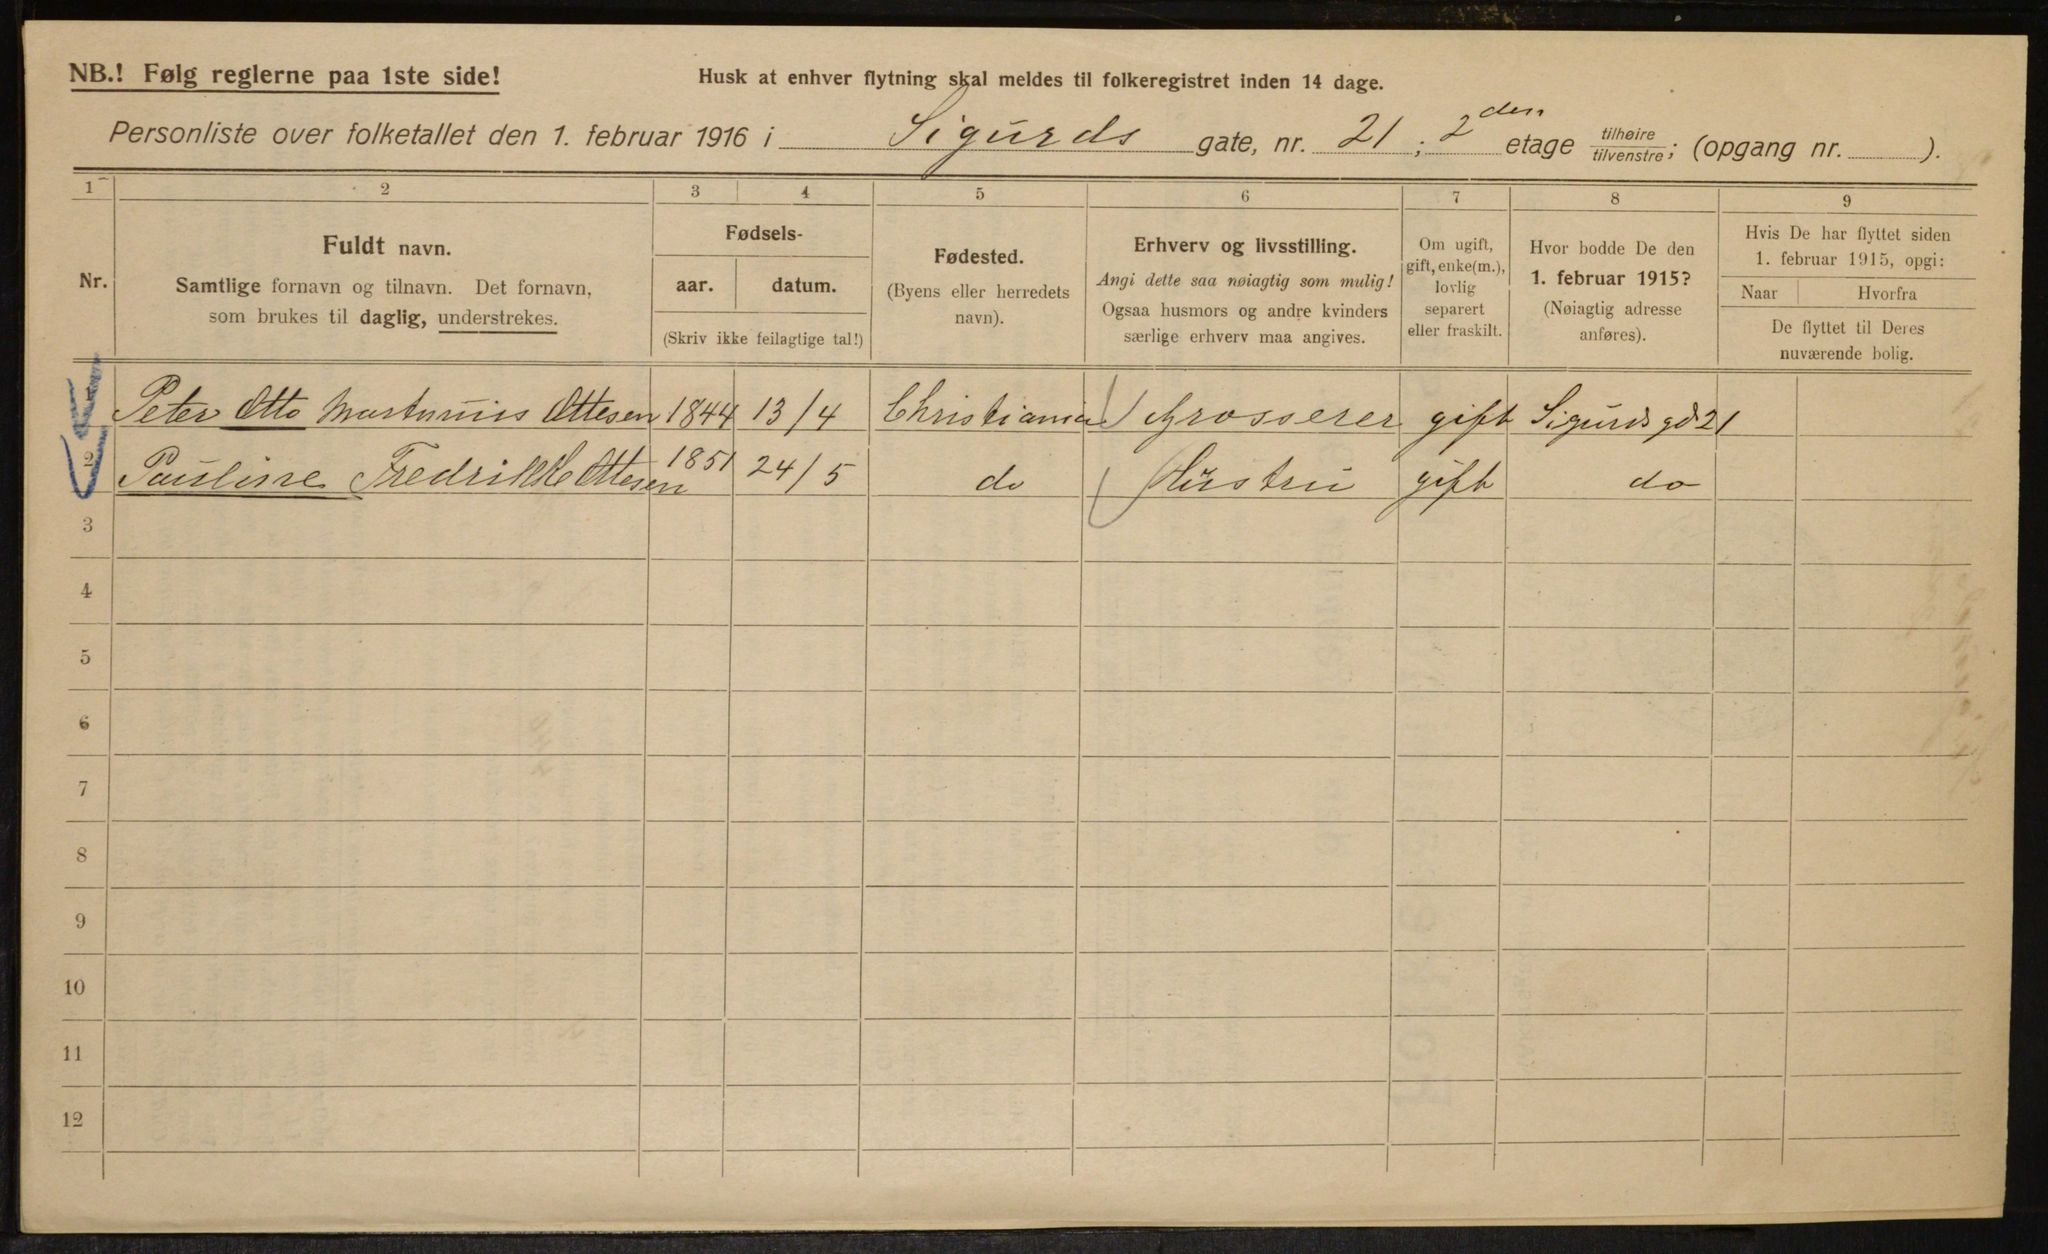 NB.! Følg reglerne paa 1ste side!
Husk at enhver flytning skal meldes til folkeregistret inden 14 dage.
Personliste over folketallet den 1. februar 1916 i Sigurds gate, nr. 21 ; 2den etage tilhøire/tilvenstre; (opgang nr. ).
1 2 3 4 5 6 7 8 9
Nr.
Fuldt navn.
Samtlige fornavn og tilnavn. Det fornavn,
som brukes til daglig, understrekes.
Fødsels-
aar. datum.
(Skriv ikke feilagtige tal!)
Fødested.
(Byens eller herredets
navn).
Erhverv og livsstilling.
Angi dette saa nøiagtig som mulig!
Ogsaa husmors og andre kvinders
særlige erhverv maa angives.
Om ugift,
gift, enke(m.),
lovlig
separert
eller fraskilt.
Hvor bodde De den
1. februar 1915?
(Nøiagtig adresse
anføres).
Hvis De har flyttet siden
1. februar 1915, opgi:
Naar Hvorfra
De flyttet til Deres
nuværende bolig.
1 Peter Otto Martinius Ottesen 1844 13/4 Christiania Grosserer gift Sigurds gd 21
2 Pauline Fredrikke Ottesen 1851 24/5 do Hustru gift do
3
4
5
6
7
8
9
10
11
12